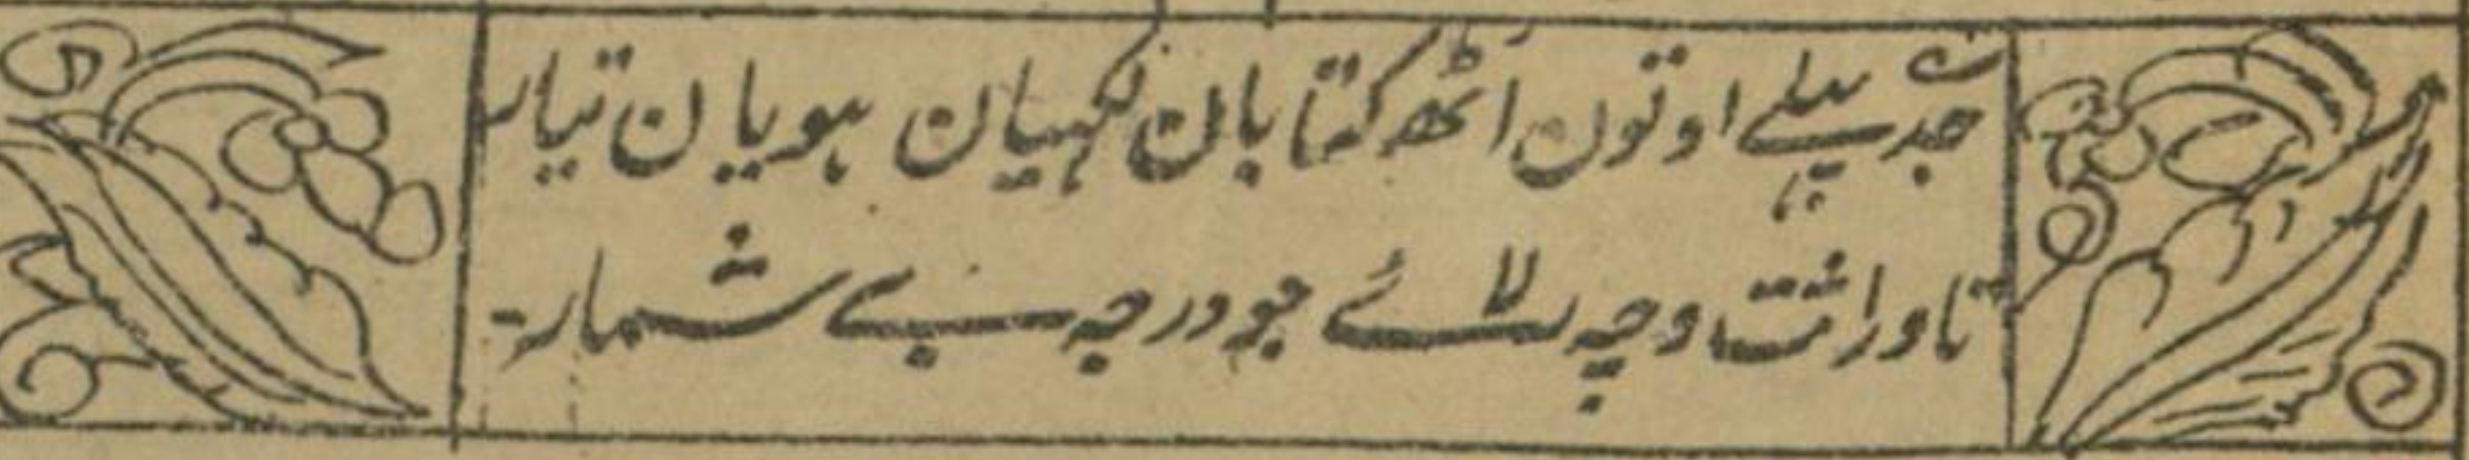 جد پہلے اوتوں اٹھ کتاباں لکہیان ہویان تیار
تاوراثت وچہ رلائے جو درجہ بے شمار-